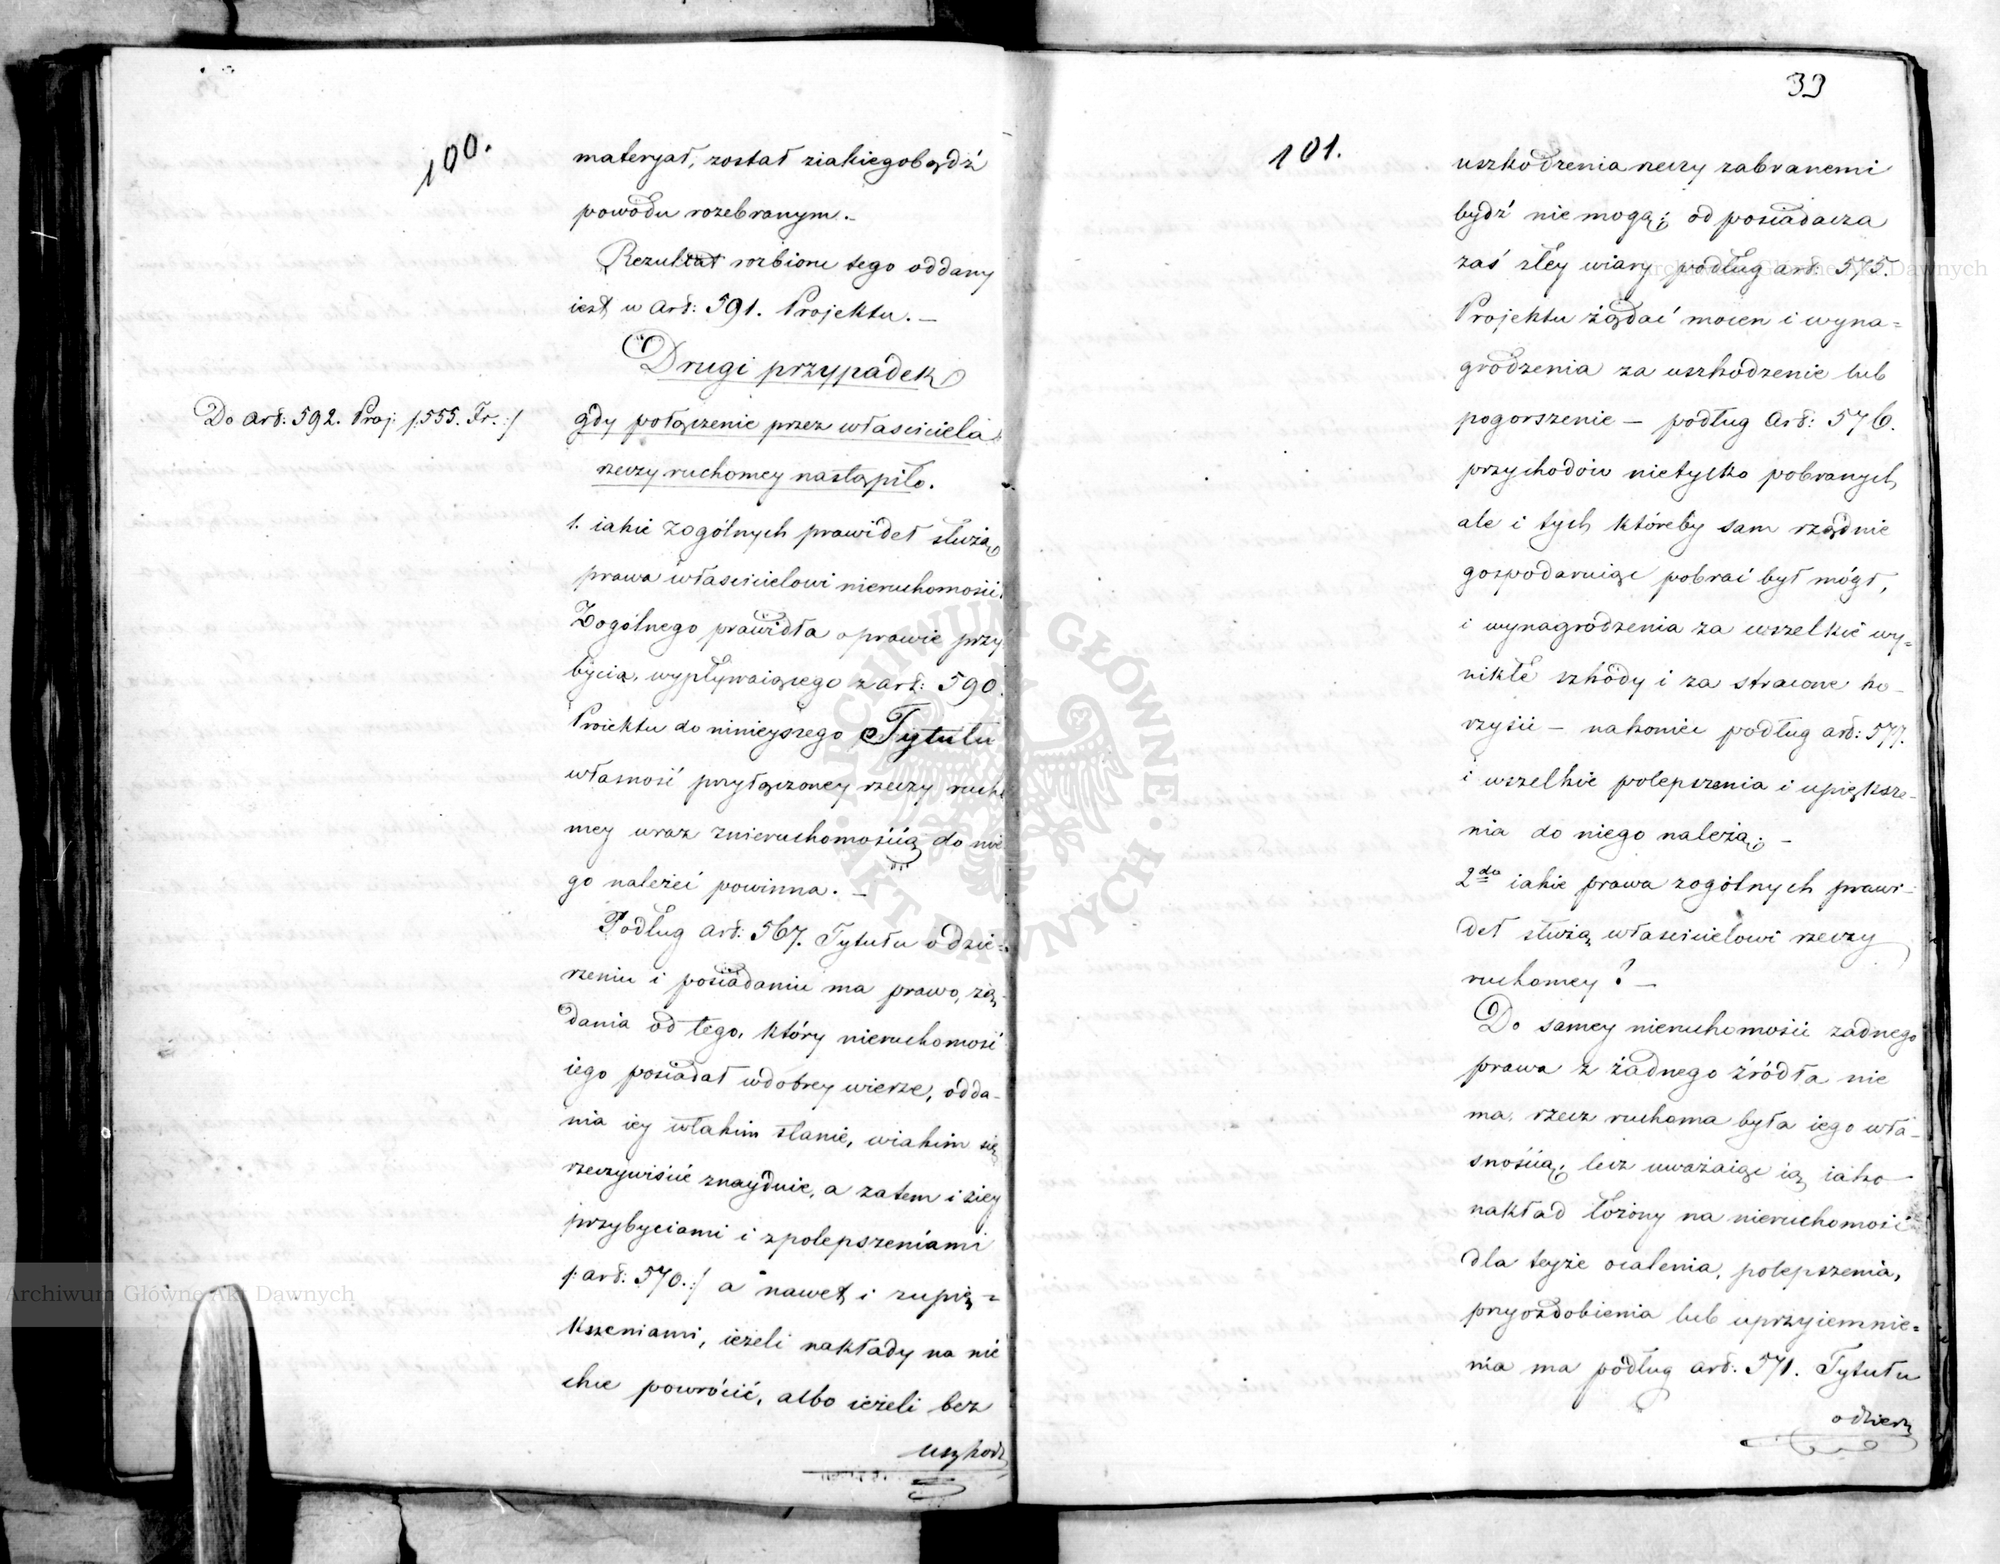 100.
materyał, został ziakiegobądź
powodu rozebranym. -
Rezultat rozbioru tego oddany
iest w art: 591. Projektu. -
Drugi przypadek
Do art: 592. Proj: /:555. Fr.:/
gdy połączenie przez właściciela
rzeczy ruchomey nastąpiło.
1. iakie zogólnych prawideł służą
prawa właścicielowi nieruchomości.
Zogólnego prawidła o prawie przy
bycia, wypływaiącego z art: 590.
Proiektu do ninieyszego Tytułu
własność przyłączoney rzeczy rucho
mey wraz znieruchomością do nie
go należeć powinna. -
Podług art: 567. Tytułu o dzie-
rzeniu i posiadaniu ma prawo, żą-
dania od tego, który nieruchomość
iego posiadał wdobrey wierze, odda-
nia iey wtakim stanie, wiakim się
rzeczywiście znayduie, a zatem i ziey
przybyciami i zpolepszeniami
/: art: 570.:/ a nawet i zupię=
kszeniami, ieżeli nakłady na nie
chce powrócić, albo ieżeli bez
uszkodz
33
101.
uszkodzenia rzeczy zabranemi
bydź nie mogą; od posiadacza
zaś złey wiary podług art: 575.
Projektu żądać mocen i wyna=
grodzenia za uszkodzenie lub
pogorszenie - podług art: 576.
przychodów nietylko pobranych
ale i tych któreby sam rządnie
gospodaruiąc pobrać był mógł,
i wynagrodzenia za wszelkie wy-
nikłe szkody i za stracone ko-
rzyści - nakoniec podług art: 577.
i wszelkie polepszenia i upiększe-
nia do niego należą; -
2do iakie prawa zogólnych prawi-
deł służą właścicielowi rzeczy
ruchomey? -
Do samey nieruchomości żadnego
prawa z żadnego źródła nie
ma, rzecz ruchoma była iego wła-
snością; lecz uważaiąc ią iako
nakład łożony na nieruchomość
dla teyże ocalenia, polepszenia,
przyozdobienia lub uprzyiemnie=
nia ma podług art: 571. Tytułu
o dzierż
Archiwum Główne Akt Dawnych
Archiwum Główne Akt Dawnych
ARCHIWUM GŁÓWNE · AKT DAWNYCH ·